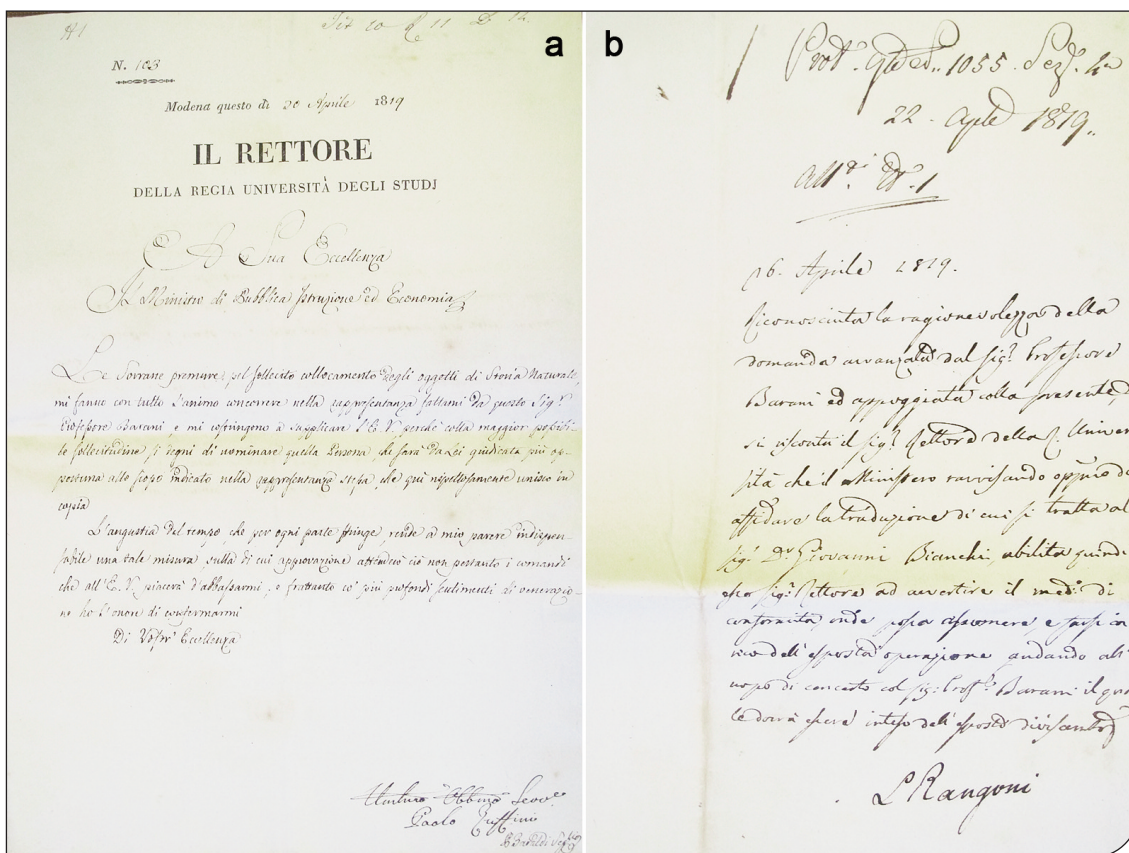 a
N. 103
Modena questo di 20 Aprile 1819
IL RETTORE
DELLA REGIA UNIVERSITÀ DEGLI STUDJ
A Sua Eccellenza
Il Ministro di Pubblica Istruzione ed Economia
Le Sovrane premure pel sollecito collocamento degli oggetti di Storia Naturale,
mi fanno con tutto l'animo concorrere nella rappresentanza fattami da questo Sig.r
Professore Barani e mi costringono a supplicare l'E. V. perchè colla maggior possibi-
le sollecitudine si degni di nominare quella Persona, che sarà da Lei giudicata più op-
portuna allo scopo indicato nella rappresentanza stessa, che qui rispettosamente unisco in
copia
L'angustia del tempo che per ogni parte stringe, rende a mio parere indispen-
sabile una tale misura sulla di cui approvazione attenderò ciò non pertanto i comandi
che all'E. V. piacerà d'abbassarmi, e frattanto co' più profondi sentimenti di venerazio-
ne ho l'onore di confermarmi
Di Vostr' Eccellenza
Paolo Ruffini
b
1055 Sez. 4a
22 Aple 1819.
16. Aprile 1819.
Riconosciuta la ragionevolezza della
domanda avanzata dal sig.r Professore
Barani ed appoggiata colla presente,
si riscontra il sig.r Rettore della R. Univer
sità che il Ministero ravvisando oppno di
affidare la traduzione di cui si tratta al
sig.r Dr Giovanni Bianchi, abilita quindi
esso sig.r Rettore ad avvertire il med.o di
conformità, onde possa assumere, e farsi ca
rico dell'esposta operazione andando all'
uopo di concerto col sig. Prof.e Barani il qua
le dovrà essere inteso dell'esposto divisamto
L Rangoni